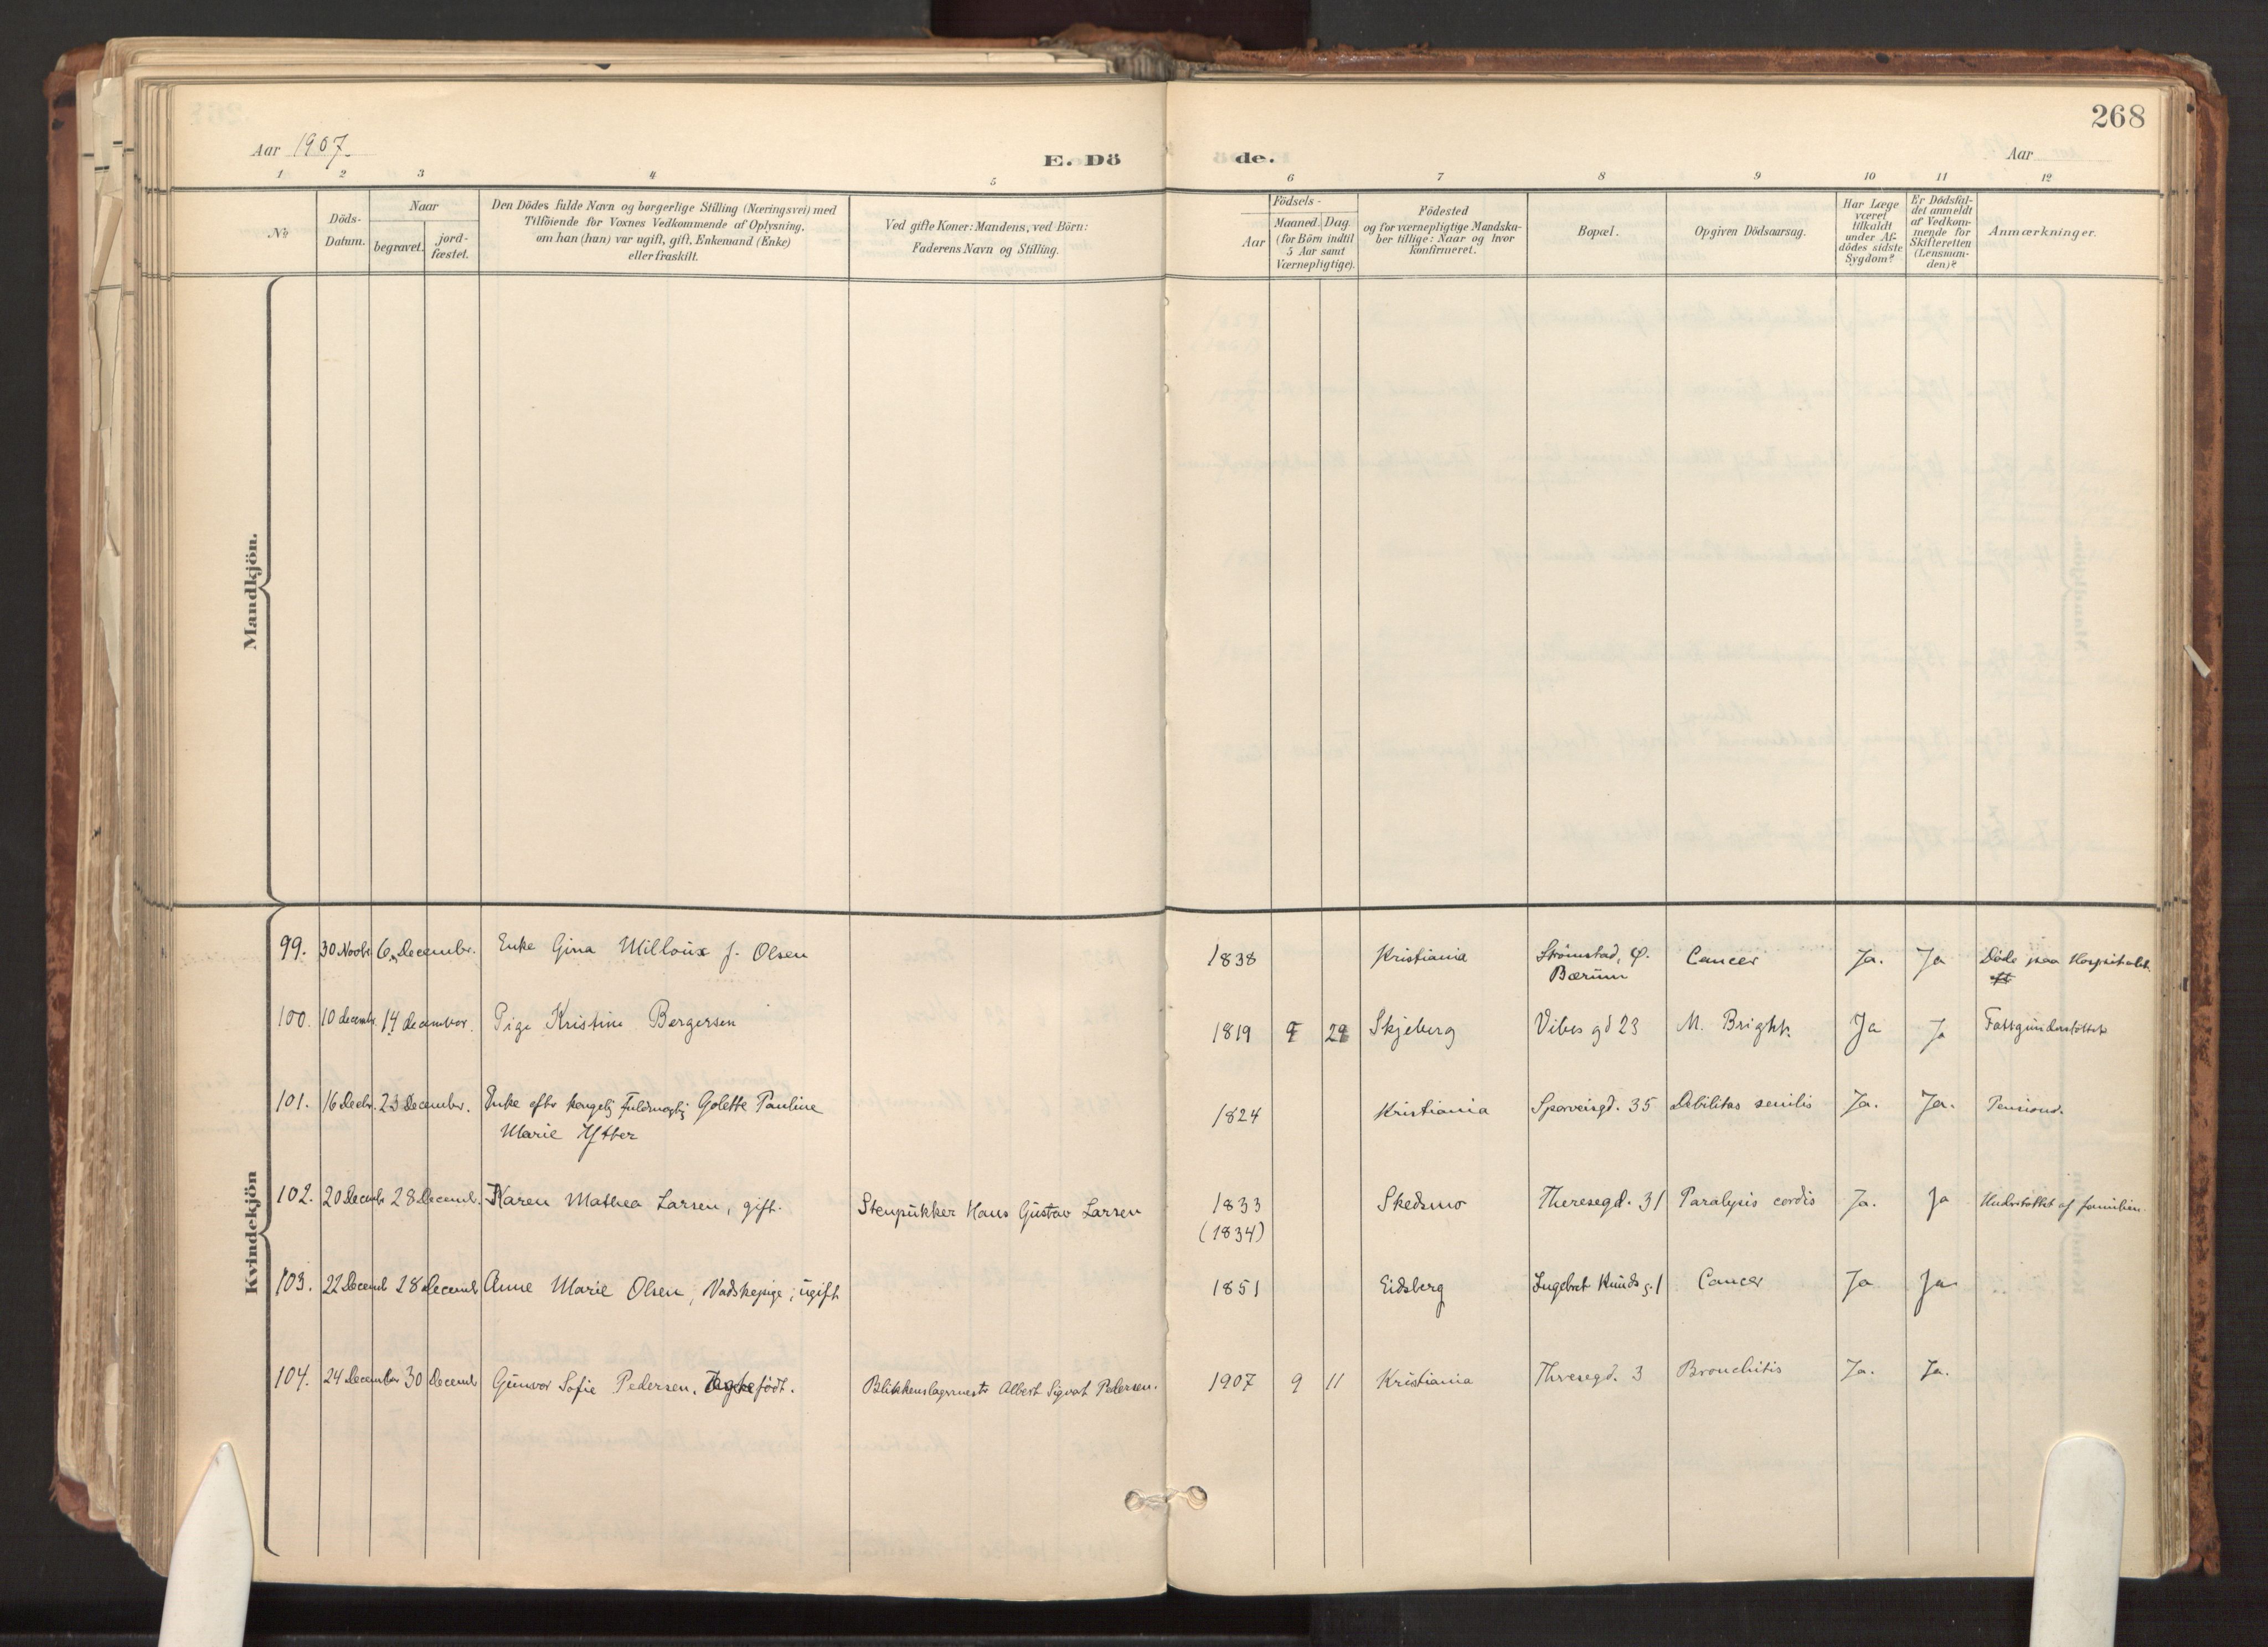 268
Aar 1907.
E. Dö
de.
Aar
1 2 3 4 5
6 7 8 9 10 11 12
Nr
Döds-
Datum.
Naar
begravet.
jord-
fæstet.
Den Dödes fulde Navn og borgerlige Stilling (Næringsvei) med
Tilföiende for Voxnes Vedkommende af Oplysning,
om han (hun) var ugift, gift, Enkemand (Enke)
eller fraskilt.
Ved gifte Koner: Mandens, ved Börn:
Faderens Navn og Stilling.
Födsels-
Aar
Maaned. Dag.
(for Börn indtil
5 Aar samt
Værnepligtige).
Födested
og for værnepligtige Mandska-
ber tillige: Naar og hvor
konfirmeret.
Bopæl.
Opgiven Dödsaarsag.
Har Læge
været
tilkaldt
under Af-
dödes sidste
Sygdom?
Er Dödsfal-
det anmeldt
af Vedkom-
mende for
Skifteretten
(Lensman-
den)?
Anmærkninger.
Mandkjön.
Kvindekjön
99. 30 Novbr. 6 December. Enke Gina Milloux f. Olsen
1838 Kristiania Strömstad, Cancer Ja. Ja Döde paa Hospitalet.
Bærum
100. 10 decembr. 14 december. Pige Kristine Bergersen
1819 29 Skjeberg Vibes gd 23 M. Brightii Ja J Fattigunderstöttet
101. 16 Decbr. 23 December. Enke efter kongelig Fuldmægtig Golette Pauline
Marie
1824 Kristiania Sporveisgd. 35 Debilitas senilis Ja. Ja. Pensiond.
102. 20 Decembr 28 Decemb. Karen Mathea Larsen, gift. Stenpukker Hans Gustav Larsen
1833 Skedsmo Theresegd. 31 Paralysis cordis Ja. Ja Understöttet af familien.
(1834)
103. 22 Decemb 28 Decemb Anne Marie Olsen, Vadskepige, ugift
1851 Eidsberg Ingebret Knuds g. 1 Cancer Ja Ja
104. 24 December 30 Decemb Gunvor Sofie Pedersen. Ægtefödt. Blikkenslagermester Albert Sigvat Pedersen.
1907 9 11 Kristiania Theresegd. 3 Bronchitis Ja. Ja.